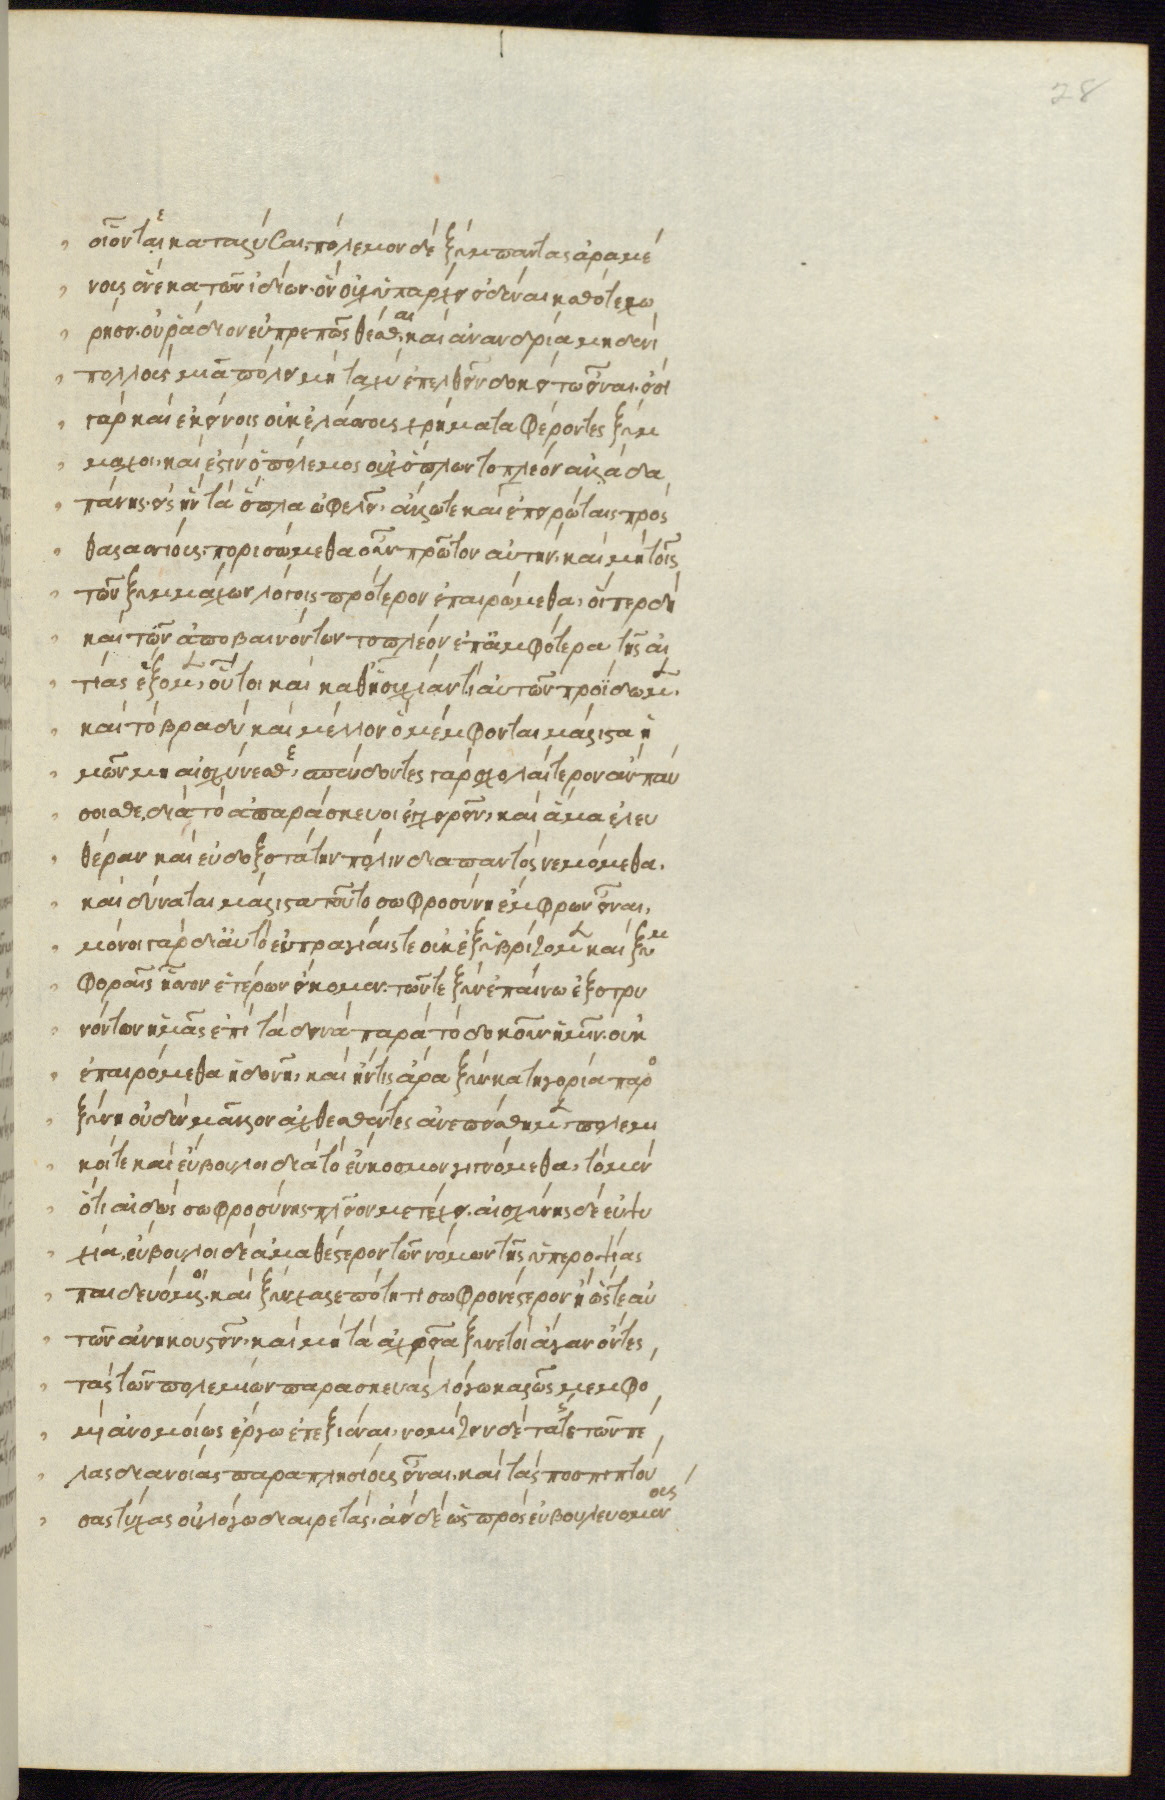 28
οἷόν τε καταλῦσαι. πόλεμον δὲ ξύμπαντας ἀραμέ
νους ἕνεκα τῶν ἰδίων. ὃν οὐχ ὑπάρχει εἰδέναι καθότι χω
ρήσει. οὐ ῥάδιον εὐπρεπῶς θέσθαι, καὶ ἀνανδρία μηδενὶ
πολλοὺς μιᾷ πόλει μὴ ταχὺ ἐπελθεῖν δοκείτω εἶναι. εἰσὶ
γὰρ καὶ ἐκείνοις οὐκ ἐλάσσους χρήματα φέροντες ξύμ
μαχοι. καὶ ἔστιν ὁ πόλεμος οὐχ ὅπλων τὸ πλέον ἀλλὰ δα
πάνης. δι ἣν τὰ ὅπλα ὠφελεῖ. ἄλλως τε καὶ ἠπειρώταις πρὸς
θαλασσίους. πορισώμεθα οὖν πρῶτον αὐτήν. καὶ μὴ τοῖς
τῶν ξυμμάχων λόγοις πρότερον ἐπαιρώμεθα. οἵπερ δὲ
καὶ τῶν ἀποβαινόντων τὸ πλέον ἐπ' ἀμφότερα τῆς αἰ
τίας ἕξομεν, οὗτοι καὶ καθ' ἡσυχίαν τὶ αὐτῶν προΐδωμεν.
καὶ τὸ βραδὺ καὶ μέλλον ὃ μέμφονται μάλιστα ἡ
μῶν μὴ αἰσχύνεσθε, σπεύδοντές τε γὰρ σχολαίτερον ἂν παύ
σοισθε, διὰ τὸ ἀπαράσκευοι ἐγχειρεῖν. καὶ ἅμα ἐλευ
θέραν καὶ εὐδοξοτάτην πόλιν διαπαντὸς νεμόμεθα.
καὶ δύναται μάλιστα τοῦτο σωφροσύνη ἔμφρων εἶναι.
μόνοι γὰρ δι αὐτὸ εὐπραγίαις τε οὐκ ἐξυβρίζομεν καὶ ξυμ
φοραῖς ἧσσον ἑτέρων εἴκομεν. τῶν τε ξὺν ἐπαίνω ἐξοτρυ
νόντων ἡμᾶς ἐπὶ τὰ δεινὰ παρὰ τὸ δοκοῦν ἡμῖν. οὐκ
ἐπαιρόμεθα ἡδονῇ. καὶ ἤν τις ἄρα ξὺν κατηγορία παρο
ξύνῃ οὐδὲν μᾶλλον ἀχθεσθέντες ἀνεπείσθημεν. πολεμι
κοί τε καὶ εὔβουλοι διὰ τὸ εὔκοσμον γιγνόμεθα. τὸ μὲν
ὅτι αἰδὼς σωφροσύνης πλεῖστον μετέχει. αἰσχύνης δὲ εὐψυ
χία. εὔβουλοι δὲ ἀμαθέστερον τῶν νόμων τῆς ὑπεροψίας
παιδευόμενοι. καὶ ξὺν χαλεπότητι σωφρονέστερον ἢ ὥστε αὐ
τῶν ἀνηκουστεῖν. καὶ μὴ τὰ ἀχρεῖα ξυνετοὶ ἄγαν ὄντες
τὰς τῶν πολεμίων παρασκευὰς λόγω καλῶς μεμφό
μενοι ἀνομοίως ἔργω ἐπεξιέναι. νομίζειν δὲ τάς τε τῶν πέ
λας διανοίας παραπλησίους εἶναι. καὶ τὰς προσπιπτού
σας τύχας οὐ λόγω διαιρετάς. ἀεὶ δὲ ὡς πρὸς εὖ βουλευομένους